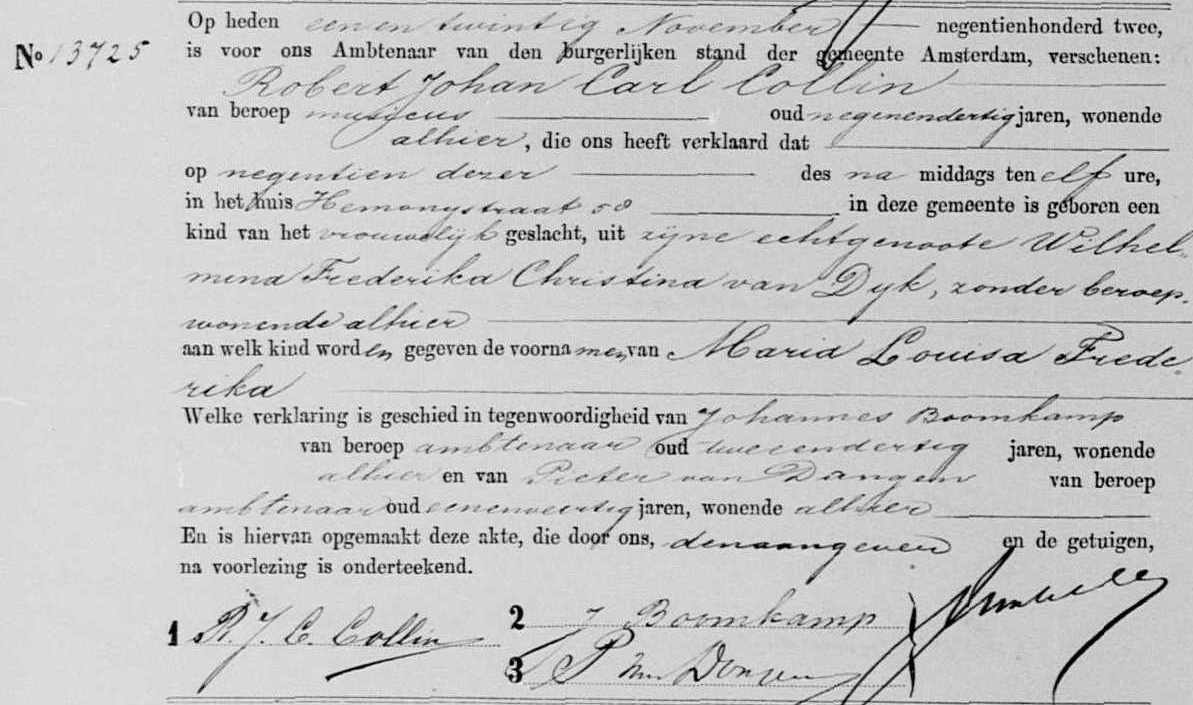 Op heden een en twintig November negentienhonderd twee,
No 13725 is voor ons Ambtenaar van den burgerlijken stand der gemeente Amsterdam, verschenen:
Robert Johan Carl Collin
van beroep musicus oud negenendertig jaren, wonende
alhier, die ons heeft verklaard dat
op negentien dezer des na middags ten elf ure,
in het huis Hemonystraat 58 in deze gemeente is geboren een
kind van het vrouwelijk geslacht, uit zijne echtgenoote Wilhel-
mina Frederika Christina van Dyk, zonder beroep,
wonende alhier
aan welk kind worden gegeven de voornamen van Maria Louisa Frede-
rika
Welke verklaring is geschied in tegenwoordigheid van Johannes Boomkamp
van beroep ambtenaar oud tweeendertig jaren, wonende
alhier en van Pieter van van beroep
ambtenaar oud eenenveertig jaren, wonende alhier
En is hiervan opgemaakt deze akte, die door ons, den aangever en de getuigen,
na voorlezing is onderteekend.
1 R. J. C. Collin 2 J Boomkamp
3 P van